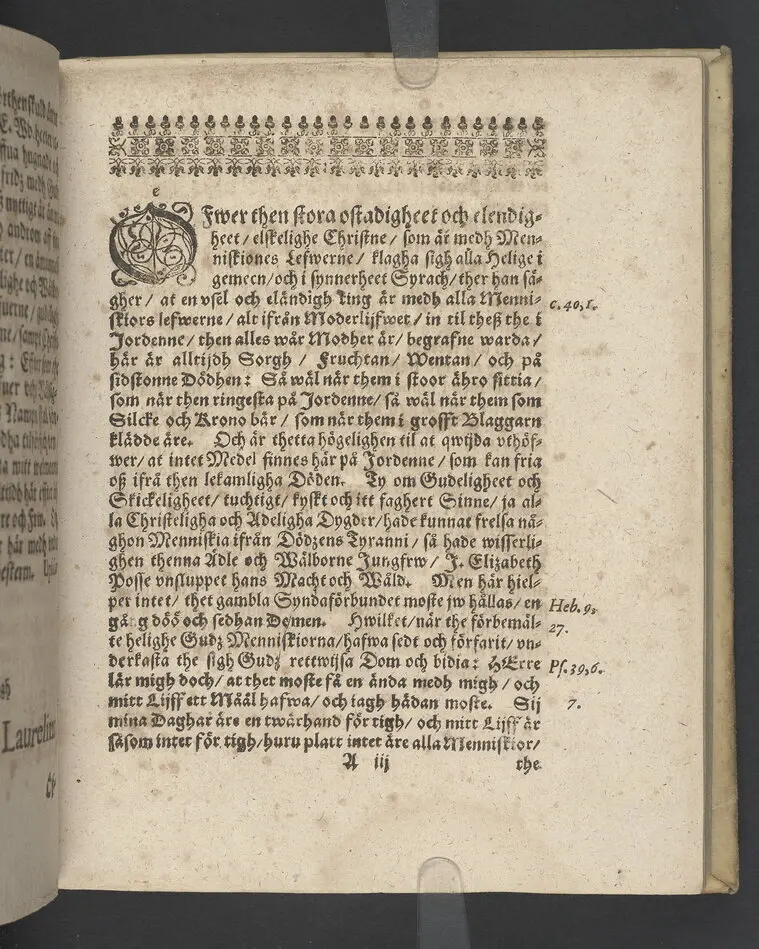 Öfwer then stora ostadigheet och elendig-
heet / elskelighe Christne / som är medh Men-
niskiones Lefwerne / klagha sigh alla Helige i
gemeen / och i synnerheet Syrach / ther han sä-
gher / at en vsel och eländigh ting är medh alla Menni-
skiors lefwerne / alt ifrån Moderlijfwet / in til theß the i
Jordenne / then alles wår Modher är / begrafne warda /
här är alltijdh Sorgh / Fruchtan / Wentan / och på
sidstonne Dödhen: Så wäl när them i stoor ähro sittia /
som när then ringesta på Jordenne / så wäl när them som
Silcke och Krono bär / som när them i grofft Blaggarn
klädde äre. Och är thetta högelighen til at qwijda vthöf-
wer / at intet Medel finnes här på Jordenne / som kan fria
oß ifrå then lekamligha Döden. Ty om Gudeligheet och
Skickeligheet / tuchtigt / kyskt och itt faghert Sinne / ja al-
la Christeligha och Adeligha Dygder / hade kunnat frelsa nå-
ghon Menniskia ifrån Dödzens Tyranni / så hade wisserli-
ghen thenna Ädle och Wälborne Jungfrw / J. Elizabeth
Posse vnsluppet hans Macht och Wåld. Men här hiel-
per intet / thet gambla Syndaförbundet moste jw hållas / en
gång döö och sedhan Domen. Hwilket / när the förbemäl-
te helighe Gudz Menniskiorna / hafwa sedt och förfarit / vn-
derkasta the sigh Gudz rettwijsa Dom och bidia: HErre
lär migh doch / at thet moste få en ända medh migh / och
mitt Lijff ett Måål hafwa / och iagh hädan moste. Sij
mina Daghar äre en twärhand för tigh / och mitt Lijff är
såsom intet för tigh / huru platt intet äre alla Menniskior /
A iij the
c. 40, 1.
Heb. 9,
27.
Ps. 39, 6.
7.
Laurelius